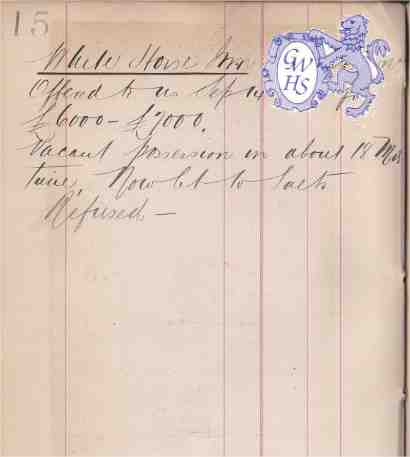 15
White Horse Inn
Offered to us Sep
£6000 – £7000.
Vacant possession in about 18 Mos
time, Now let to Salts
Refused —
GW
HS